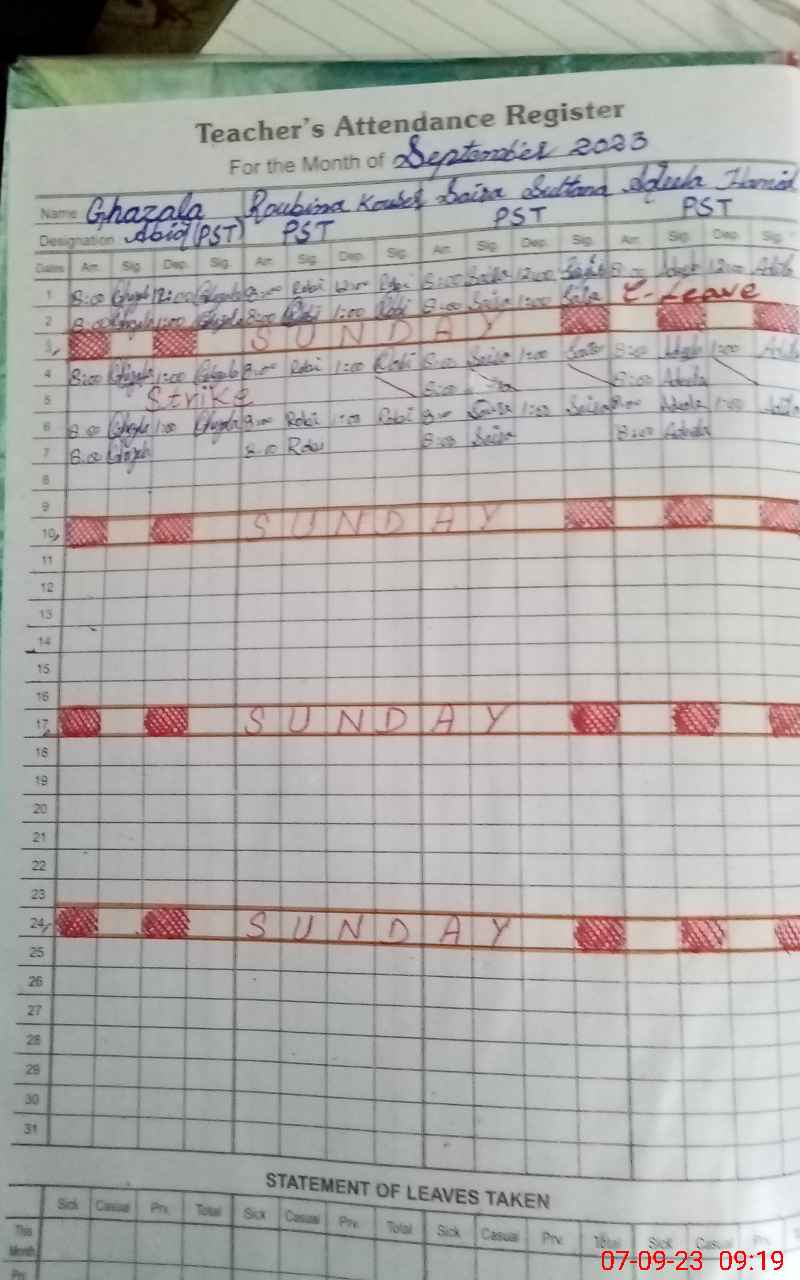 Teacher's Attendance Register
For the Month of September 2023
Name Ghazala Roubina Kousel Saira Sultana Adeela Hamid
Designation Abid (PST) PST PST PST
Dates Arr. Sig. Dep. Sig. Arr. Sig. Dep. Sig. Arr. Sig. Dep. Sig. Arr. Sig. Dep. Sig.
1 8:00 12:00 8:00 Robi 12:00 Robi 8:00 Saira 12:00 Saira 8:00 Adeela 12:00
2 8:00 1:00 8:00 Robi 1:00 Robi 8:00 Saira 1:00 Saira C-Leave
3, SUNDAY
4 8:00 1:00 8:00 Robi 1:00 Robi 8:00 Saira 1:00 Saira 8:00 Adeela 1:00
5 Strike 8:00 8:00 Adeela
6 8:00 1:00 8:00 Robi 1:00 Robi 8:00 Saira 1:00 Saira 8:00 Adeela 1:00
7 8:00 8:00 Robi 8:00 Saira 8:00 Adeela
8
9
10, SUNDAY
11
12
13
14
15
16
17, SUNDAY
18
19
20
21
22
23
24, SUNDAY
25
26
27
28
29
30
31
STATEMENT OF LEAVES TAKEN
Sick Casual Prv. Total Sick Casual Prv. Total Sick Casual Prv. Total Sick Casual
This
Month
07-09-23 09:19